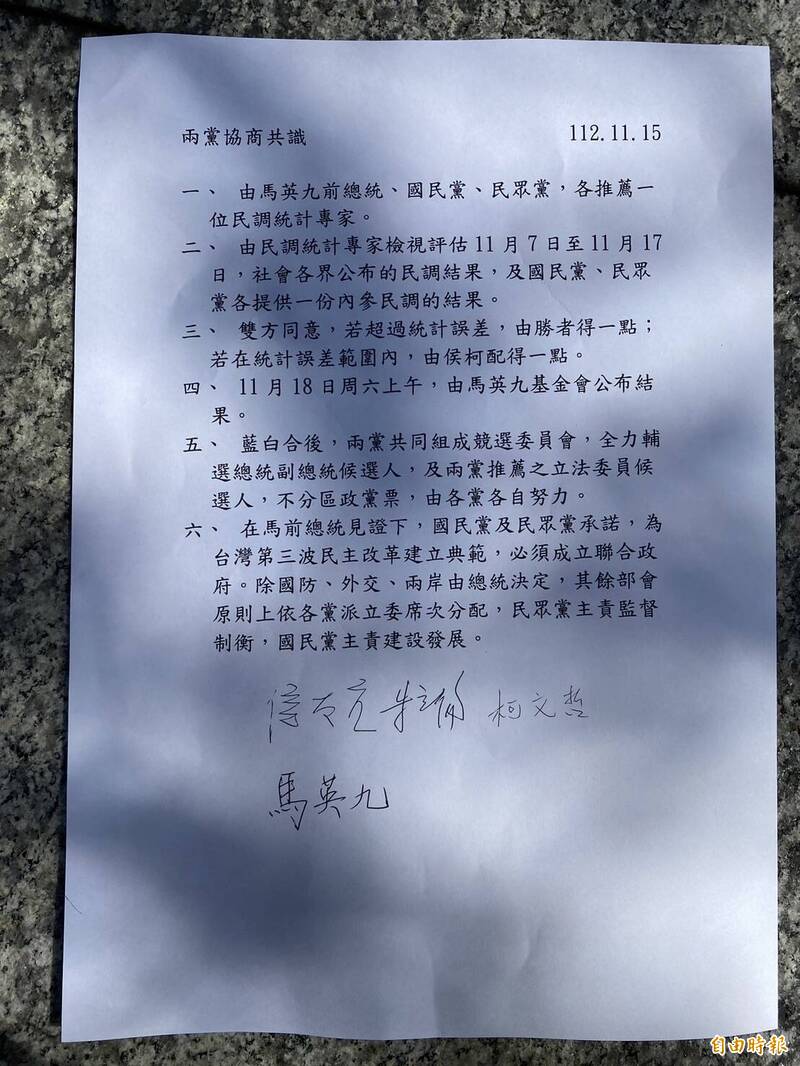 兩黨協商共識 112.11.15
一、 由馬英九前總統、國民黨、民眾黨，各推薦一
位民調統計專家。
二、 由民調統計專家檢視評估11月7日至11月17
日，社會各界公布的民調結果，及國民黨、民眾
黨各提供一份內參民調的結果。
三、 雙方同意，若超過統計誤差，由勝者得一點；
若在統計誤差範圍內，由侯柯配得一點。
四、 11月18日周六上午，由馬英九基金會公布結
果。
五、 藍白合後，兩黨共同組成競選委員會，全力輔
選總統副總統候選人，及兩黨推薦之立法委員候
選人，不分區政黨票，由各黨各自努力。
六、 在馬前總統見證下，國民黨及民眾黨承諾，為
台灣第三波民主改革建立典範，必須成立聯合政
府。除國防、外交、兩岸由總統決定，其餘部會
原則上依各黨派立委席次分配，民眾黨主責監督
制衡，國民黨主責建設發展。
侯友宜 朱立倫 柯文哲
馬英九
自由時報